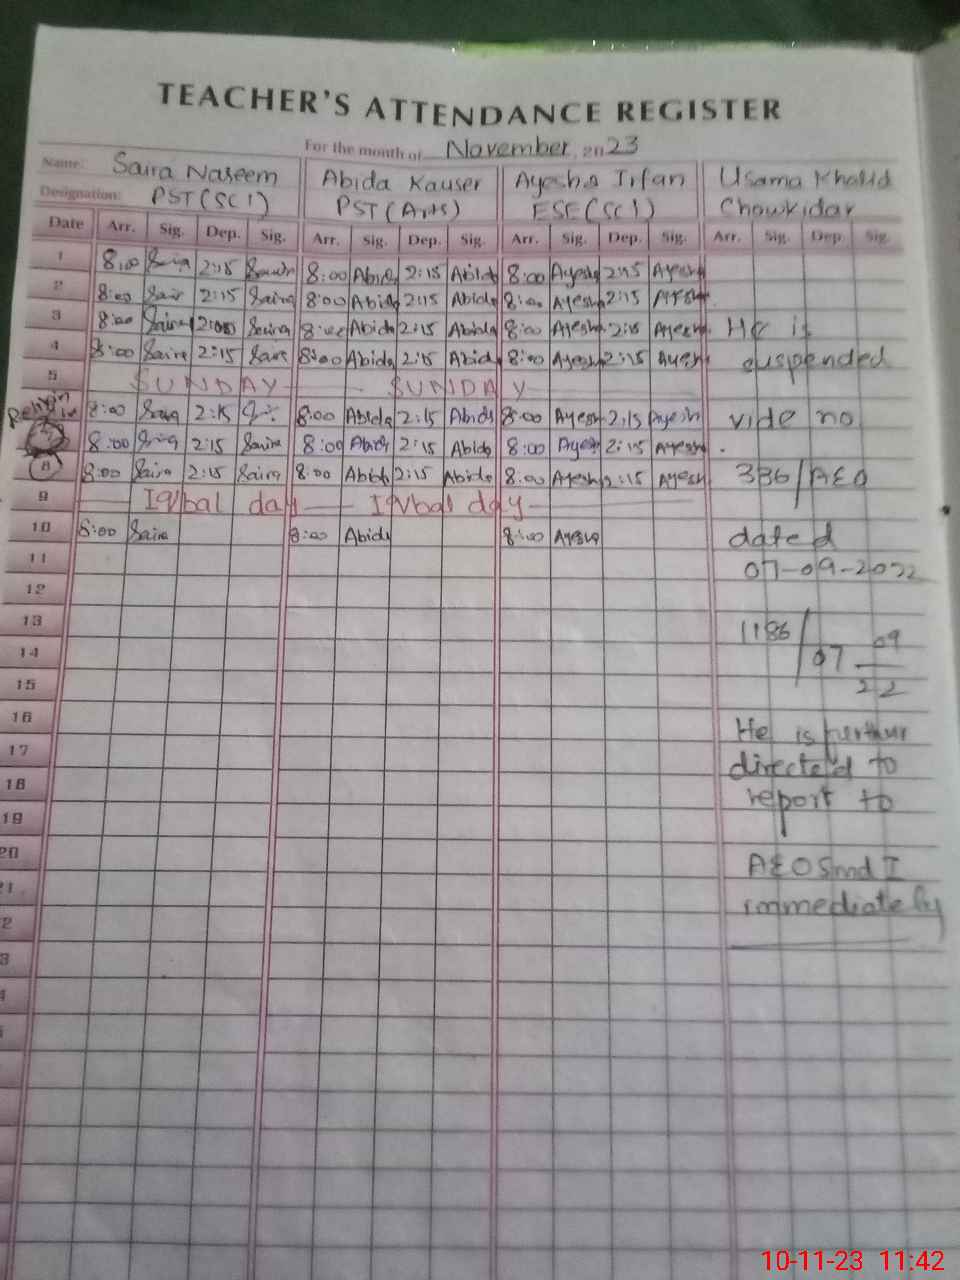 TEACHER'S ATTENDANCE REGISTER
For the month of November, 2023
Name: Saira Naseem Abida Kauser Ayesha Irfan Usama Khalid
Designation: PST (SCI) PST (Arts) ESE (SCI) Chowkidar
Date Arr. Sig. Dep. Sig. Arr. Sig. Dep. Sig. Arr. Sig. Dep. Sig. Arr. Sig. Dep. Sig.
1 8:00 Saira 2:15 8:00 Abida 2:15 Abida 8:00 Ayesha 2:15 Ayesha
2 8:00 Sair 2:15 Saira 8:00 Abida 2:15 Abida 8:00 Ayesha 2:15 Ayesha
3 8:00 Saira Saira 8:00 Abida 2:15 Abida 8:00 Ayesha 2:15 Ayesh He is
4 8:00 Saira 2:15 Saira 8:00 Abida 2:15 Abida 8:00 Ayesha 2:15 Ayesh suspended
5 SUNDAY SUNDAY
8:00 Saira 2:15 8:00 Abida 2:15 Abida 8:00 Ayesh 2:15 Ayesh vide no
8:00 Saira 2:15 Saira 8:00 Abida 2:15 Abida 8:00 Ayesh 2:15 Ayesha
8 8:00 Saira 2:15 Saira 8:00 Abida 2:15 Abida 8:00 Ayesh 2:15 Ayesh 336/AEO
9 Iqbal day Iqbal day
10 8:00 Saira 8:00 Abida 8:00 Ayesha dated
11 07-09-2022
12
13 1186/
14 07 09
15 22
16 He is further
17 directed to
18 report to
19
20 AEO Smnd I
21 immediately
10-11-23 11:42